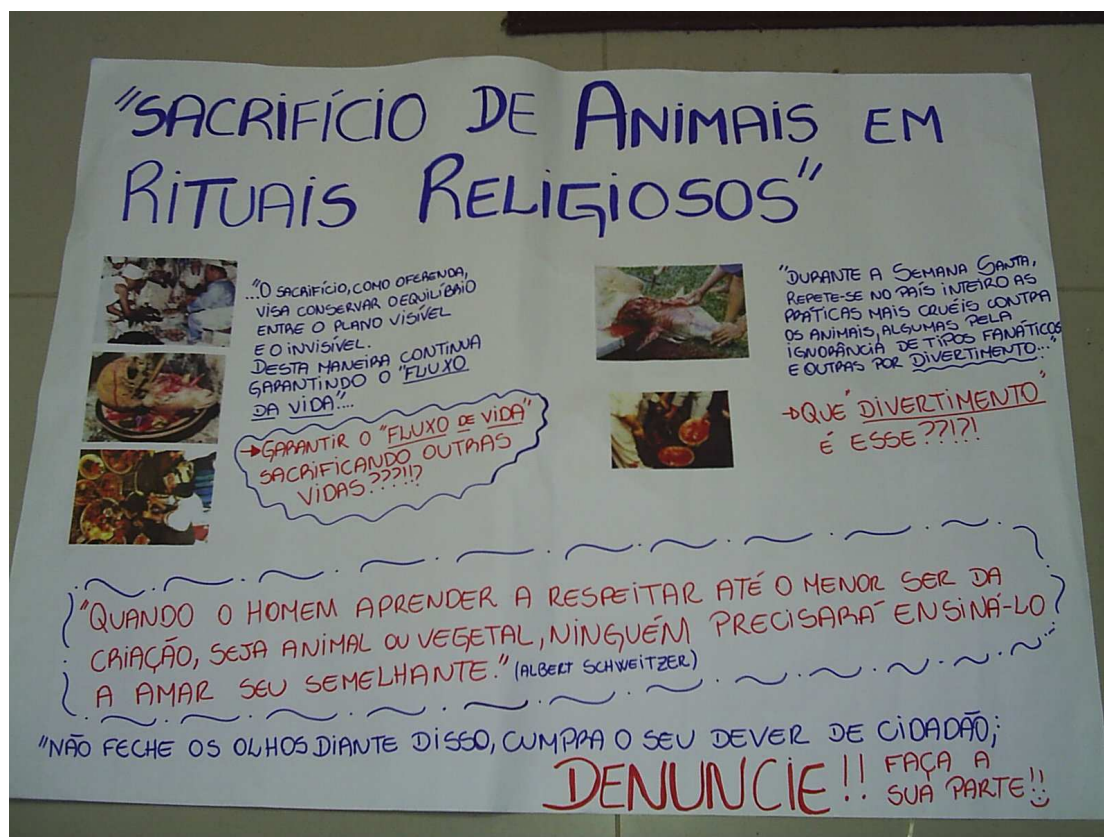 "SACRIFÍCIO DE ANIMAIS EM
RITUAIS RELIGIOSOS"
..."O SACRIFÍCIO, COMO OFERENDA,
VISA CONSERVAR O EQUILÍBRIO
ENTRE O PLANO VISÍVEL
E O INVISÍVEL.
DESTA MANEIRA CONTINUA
GARANTINDO O "FLUXO
DA VIDA"...
→GARANTIR O "FLUXO DE VIDA"
SACRIFICANDO OUTRAS
VIDAS???!!?
"DURANTE A SEMANA SANTA,
REPETE-SE NO PAÍS INTEIRO AS
PRÁTICAS MAIS CRUÉIS CONTRA
OS ANIMAIS, ALGUMAS PELA
IGNORÂNCIA DE TIPOS FANÁTICOS
E OUTRAS POR DIVERTIMENTO..."
→QUE "DIVERTIMENTO"
É ESSE??!?!
"QUANDO O HOMEM APRENDER A RESPEITAR ATÉ O MENOR SER DA
CRIAÇÃO, SEJA ANIMAL OU VEGETAL, NINGUÉM PRECISARÁ ENSINÁ-LO
A AMAR SEU SEMELHANTE." (ALBERT SCHWEITZER)
"NÃO FECHE OS OLHOS DIANTE DISSO, CUMPRA O SEU DEVER DE CIDADÃO;
DENUNCIE!! FAÇA A
SUA PARTE!!